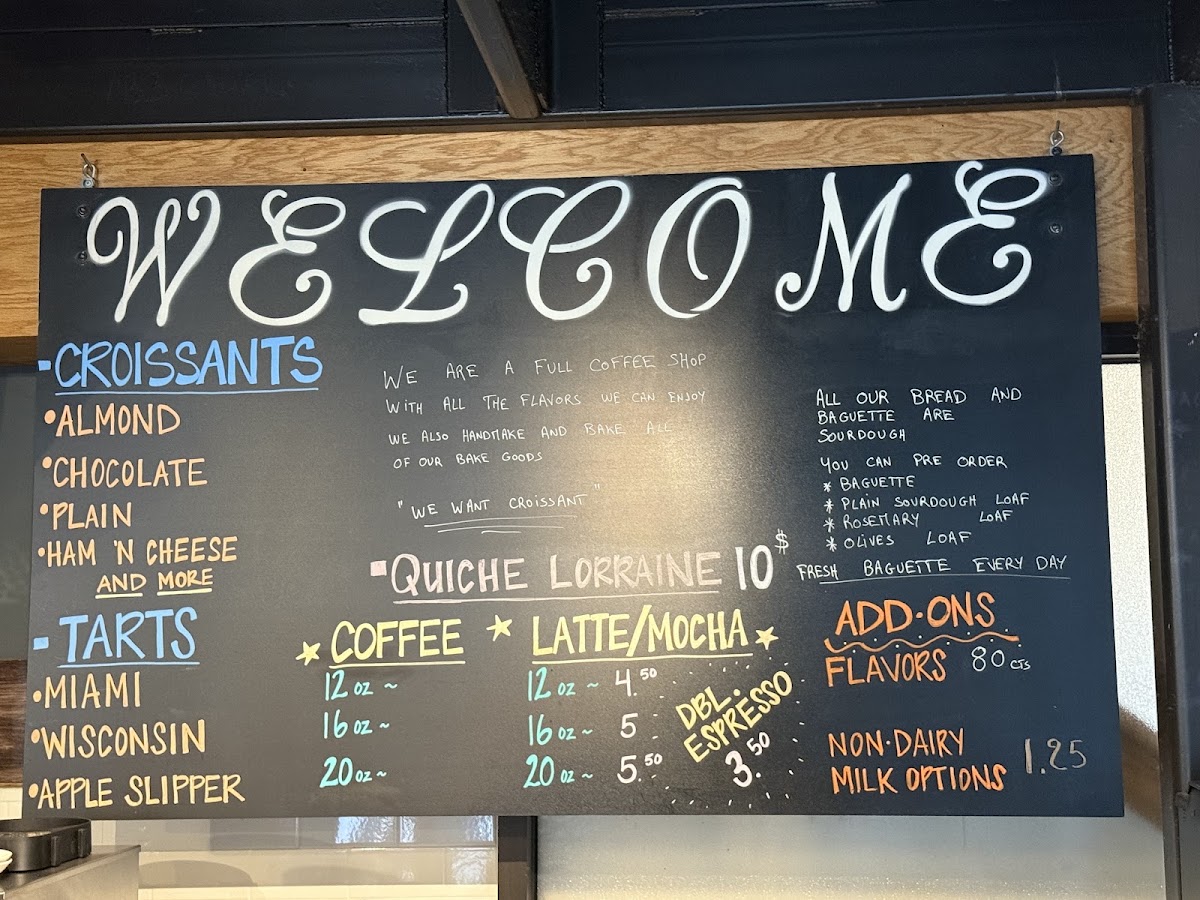 WELCOME
-CROISSANTS
•ALMOND
•CHOCOLATE
•PLAIN
•HAM 'N CHEESE
AND MORE
-TARTS
•MIAMI
•WISCONSIN
•APPLE SLIPPER
WE ARE A FULL COFFEE SHOP
WITH ALL THE FLAVORS WE CAN ENJOY
WE ALSO HANDMAKE AND BAKE ALL
OF OUR BAKE GOODS
"WE WANT CROISSANT"
-QUICHE LORRAINE 10$
COFFEE
12 oz ~
16 oz ~
20 oz ~
LATTE/MOCHA
12 oz ~ 4.50
16 oz ~ 5
20 oz ~ 5.50
DBL.
ESPRESSO
3.50
ALL OUR BREAD AND
BAGUETTE ARE
SOURDOUGH
YOU CAN PRE ORDER
* BAGUETTE
* PLAIN SOURDOUGH LOAF
* ROSEMARY LOAF
* OLIVES LOAF
FRESH BAGUETTE EVERY DAY
ADD·ONS
FLAVORS 80 CTS
NON·DAIRY
MILK OPTIONS 1.25